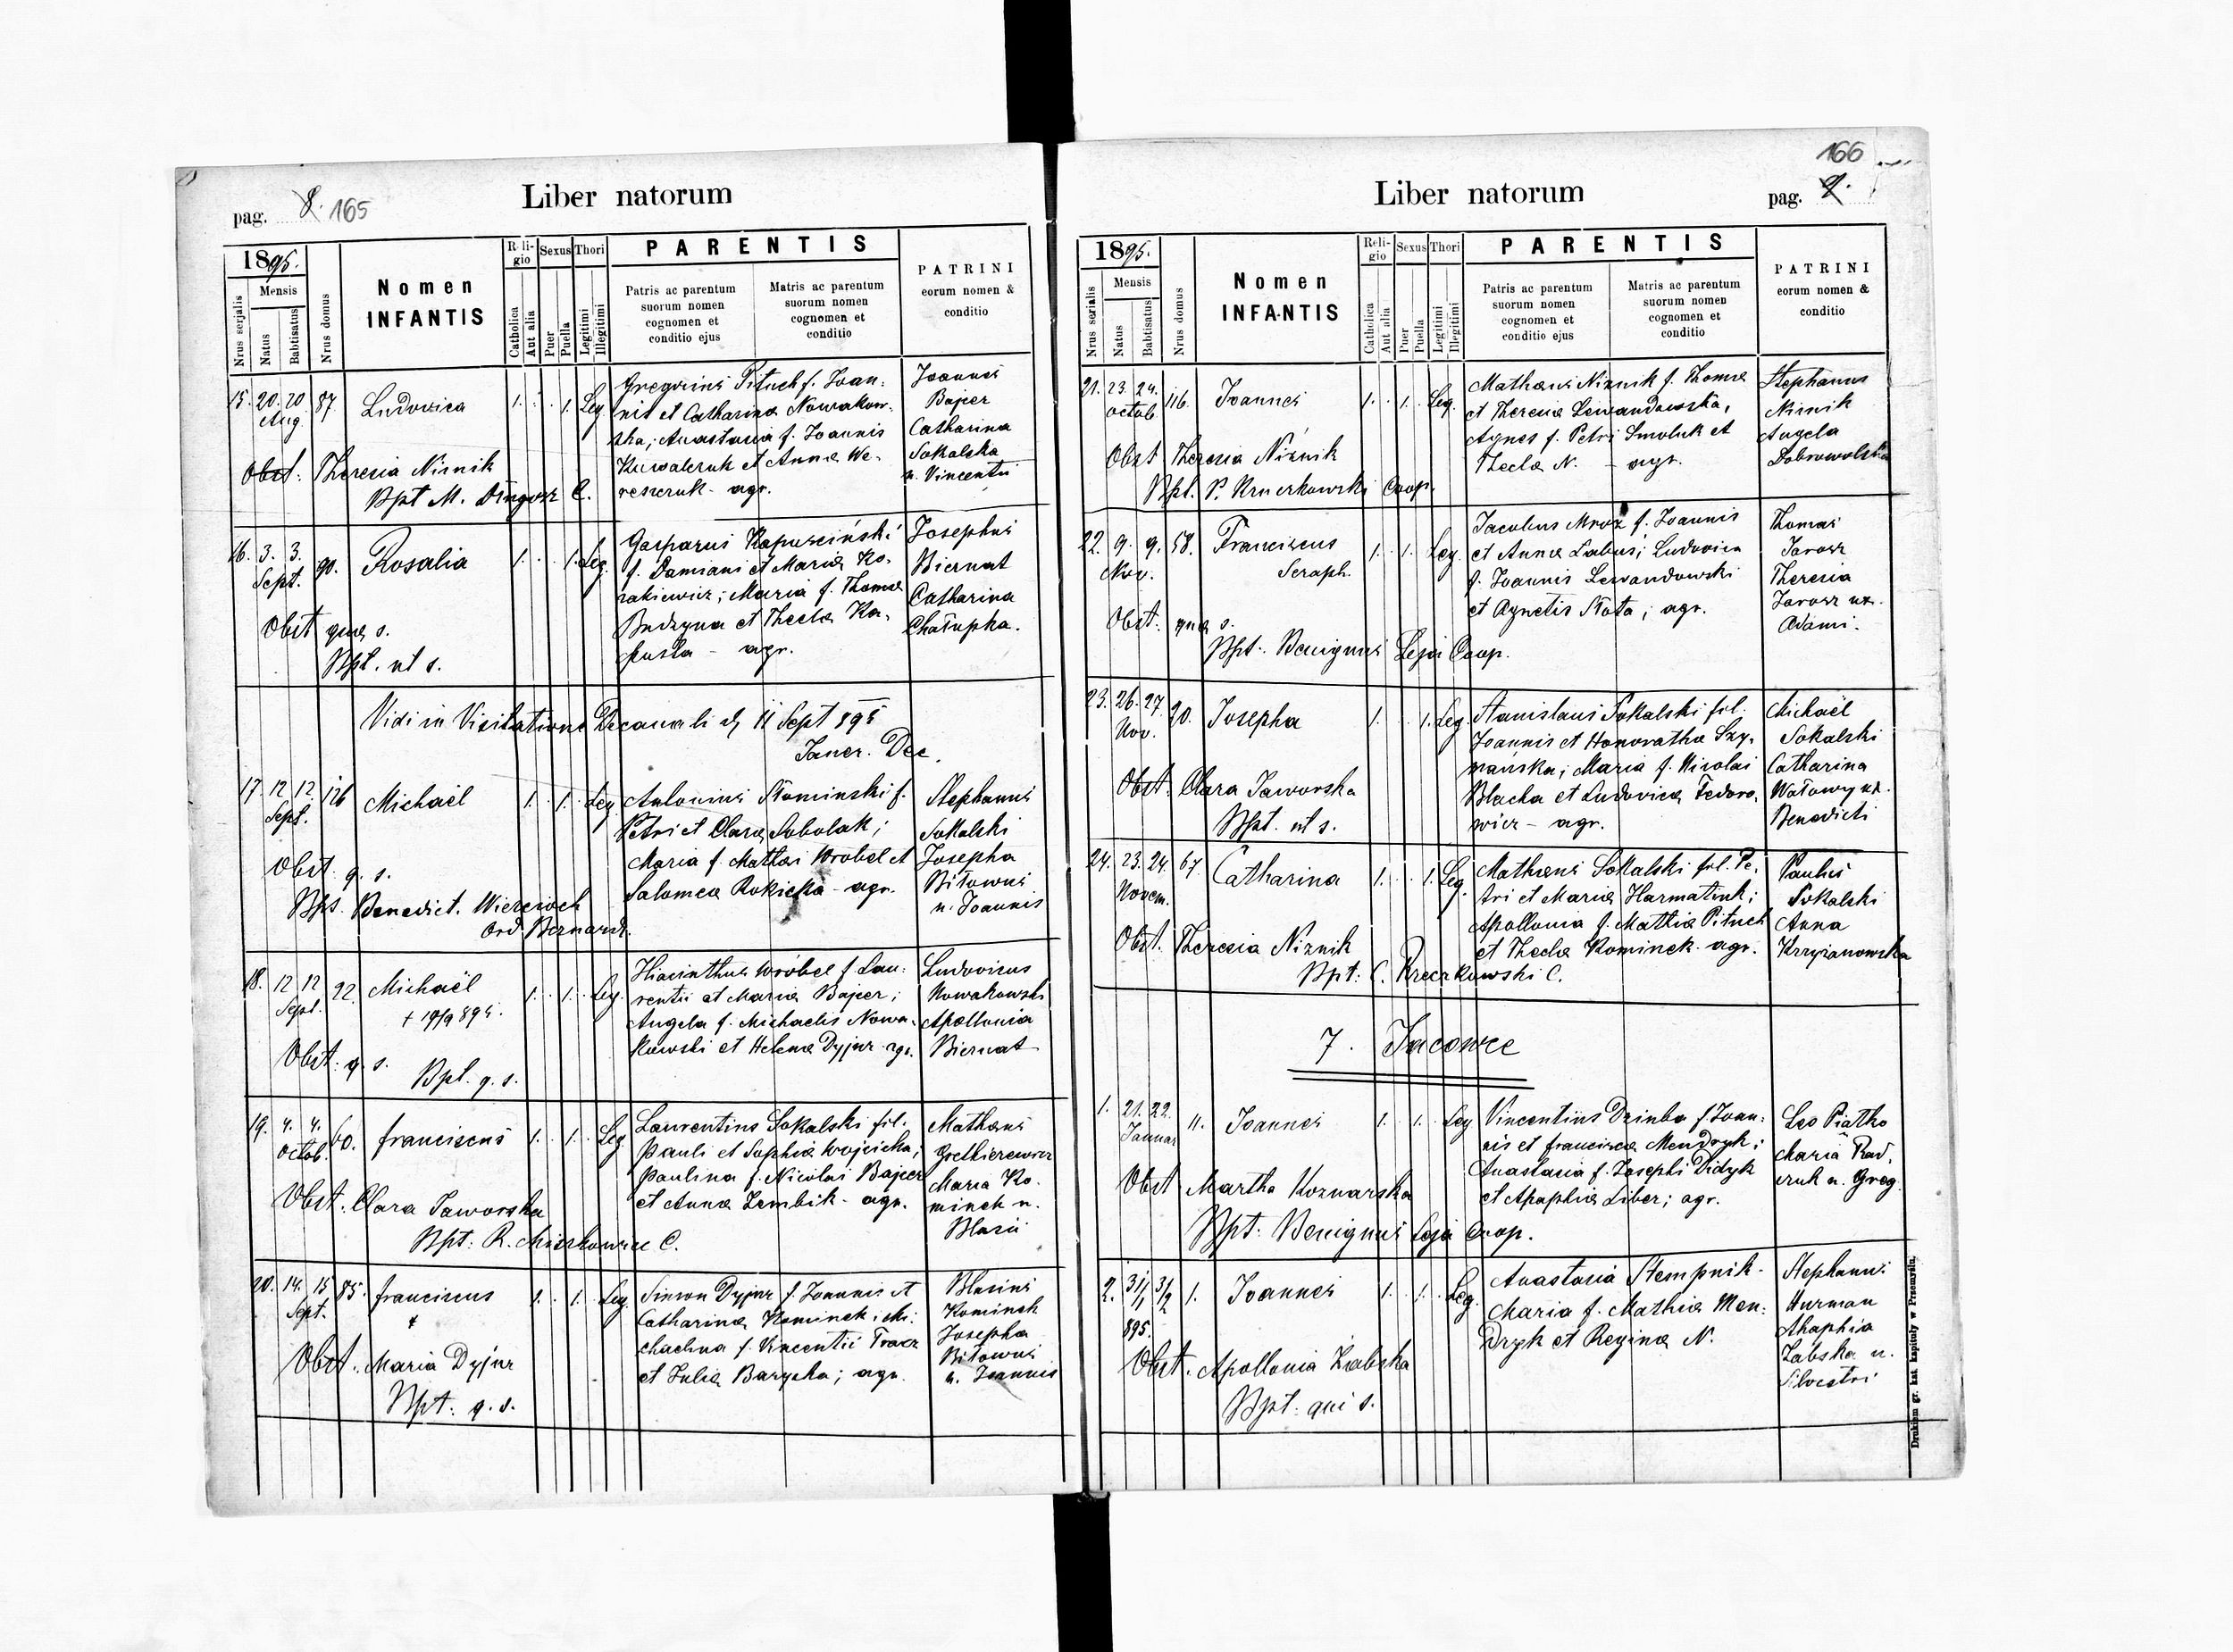 pag. 8. 165
Liber natorum
1895.
Nrus serjalis
Mensis
Natus
Babtisatus
Nrus domus
Nomen
INFANTIS
Reli-
gio
Catholica
Aut alia
Sexus
Puer
Puella
Thori
Legitimi
Illegitimi
PARENTIS
Patris ac parentum
suorum nomen
cognomen et
conditio ejus
Matris ac parentum
suorum nomen
cognomen et
conditio
PATRINI
eorum nomen &
conditio
15. 20. 20 87. Ludovica 1. 1. Leg.
Aug.
Gregorius Pituch f. Joan-
nis et Catharina Nowakow-
ska; Anastasia f. Joannis
Kuwalcruk et Anna We-
reszruk - agr.
Joannes
Bajcer
Catharina
Sokalska
u. Vincentii
Obst: Theresia Nisnik
Bpt M. Dingosz C.
16. 3. 3. 90. Rosalia 1. 1. Leg.
Sept.
Gasparus Kapuscinski
f. Damiani et Maria Ko-
zakiewicz; Maria f. Thoma
Budzyna et Thecla Ka-
pusta - agr.
Josephus
Biernat
Catharina
Chałupka.
Obst qua s.
Bpt. ut s.
Vidi in Visitatione Decanali d. 11 Sept 895
Dec.
17. 12 12. 126 Michaël 1. 1. Leg
Sept.
Antonius Słominski f.
Petri et Clara Sobolak;
Maria f. Mathai Wrobel et
Salomea Rokicka - agr.
Stephanus
Sokalski
Josepha
Bitowus
u. Joannis
Obst. q. s.
Bpt. Benedict. Wiercioch
Ord Bernard.
18. 12 12 92. Michaël 1. 1. Leg.
Sept. + 19/9 895.
Hiacinthus Wróbel f Lau-
rentii et Maria Bajcer;
Angela f. Michaelis Nowa-
kowski et Helena Dyjur agr.
Ludovicus
Nowakowski
Apollonia
Biernat
Obst: q. s.
Bpt. q. s.
19. 4. 4. 60. franciscus 1. 1. Leg
Octob.
Laurentius Sokalski fil.
Pauli et Sophia Wojcicka;
Paulina f. Nicolai Bajcer
et Anna Zembik - agr.
Mathaus
Maria Ko-
minek u.
Blasii
Obst. Clara Jaworska
Bpt: R. C.
20. 14. 15 85. franciscus 1. 1. Leg.
Sept.
Simon Dyjur f. Joannis et
Catharina Kominek; Mi-
chaelina f. Vincentii Tracz
et Julia Barycka; agr.
Blasius
Kominek
Josepha
Bitowus
u. Joannis
Obst. Maria Dyjur
Bpt: q. s.
Liber natorum
166
pag. 9.
1895.
Nrus serialis
Mensis
Natus
Babtisatus
Nrus domus
Nomen
INFANTIS
Reli-
gio
Catholica
Aut alia
Sexus
Puer
Puella
Thori
Legitimi
Illegitimi
PARENTIS
Patris ac parentum
suorum nomen
cognomen et
conditio ejus
Matris ac parentum
suorum nomen
cognomen et
conditio
PATRINI
eorum nomen &
conditio
21. 23. 24. 116. Joannes 1. 1. Leg.
Octob.
Mathaus Nisnik f. Thoma
et Theresia Lewandowska,
Agnes f. Petri Smoluk et
Thecla N. - agr.
Stephanus
Nisnik
Angela
Dobrowolska
Obst Theresia Niżnik
Bpt. P. Coop.
22. 9. 9. 58. Franciscus 1. 1. Leg
Nov. Seraph.
Jacobus Mroz f. Joannis
et Anna Labus; Ludovica
f. Joannis Lewandowski
et Agnetis Słota; agr.
Thomas
Jarosz
Theresia
Jarosz ux.
Adami.
Obst: qua s.
Bpt: Benignus Leja Coop.
23. 26. 27 20. Josepha 1. 1. Leg.
Nov.
Stanislaus Sokalski fil.
Joannis et Honoratha Szy-
mańska; Maria f. Nicolai
Blacha et Ludovica Fedoro-
wicz - agr.
Michaël
Sokalski
Catharina
Watowy ux.
Benedicti
Obst. Clara Jaworska
Bpt. ut s.
24. 23. 24. 67. Catharina 1. 1. Leg.
Novem.
Mathaus Sokalski fil. Pe-
tri et Maria Harmatiuk;
Apollonia f. Mathia Pituch
et Thecla Kominek - agr.
Paulus
Sokalski
Anna
Krzyzanowska
Obst. Theresia Niznik
Bpt: C. C.
7. Jacowce
1. 21. 22. 11. Joannes 1. 1. Leg
Januar
Vincentius Dzinba f Joan-
nis et francisca Mendryk;
Anastasia f. Josephi Didyk
et Ahaphia Liber; agr.
Leo Piatko
Maria Rad-
cruk u. Greg.
Obst Martha Koznarska
Bpt: Benignus Leja Coop.
2. 31/1 3/2 1. Joannes 1. 1. Leg.
895.
Anastasia Stempnik.
Maria f. Mathia Men-
dryk et Regina N.
Stephanus
Hurman
Ahaphia
Zabska u.
Silvestri
Obst. Apollonia Zabska
Bpt: qui s.
Drukiem gr. kat. kapituły w Przemyślu.